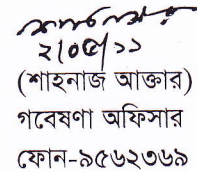 ২/০৫/১১
(শাহনাজ আক্তার)
গবেষণা অফিসার
ফোন-৯৫৬২৩৬৯